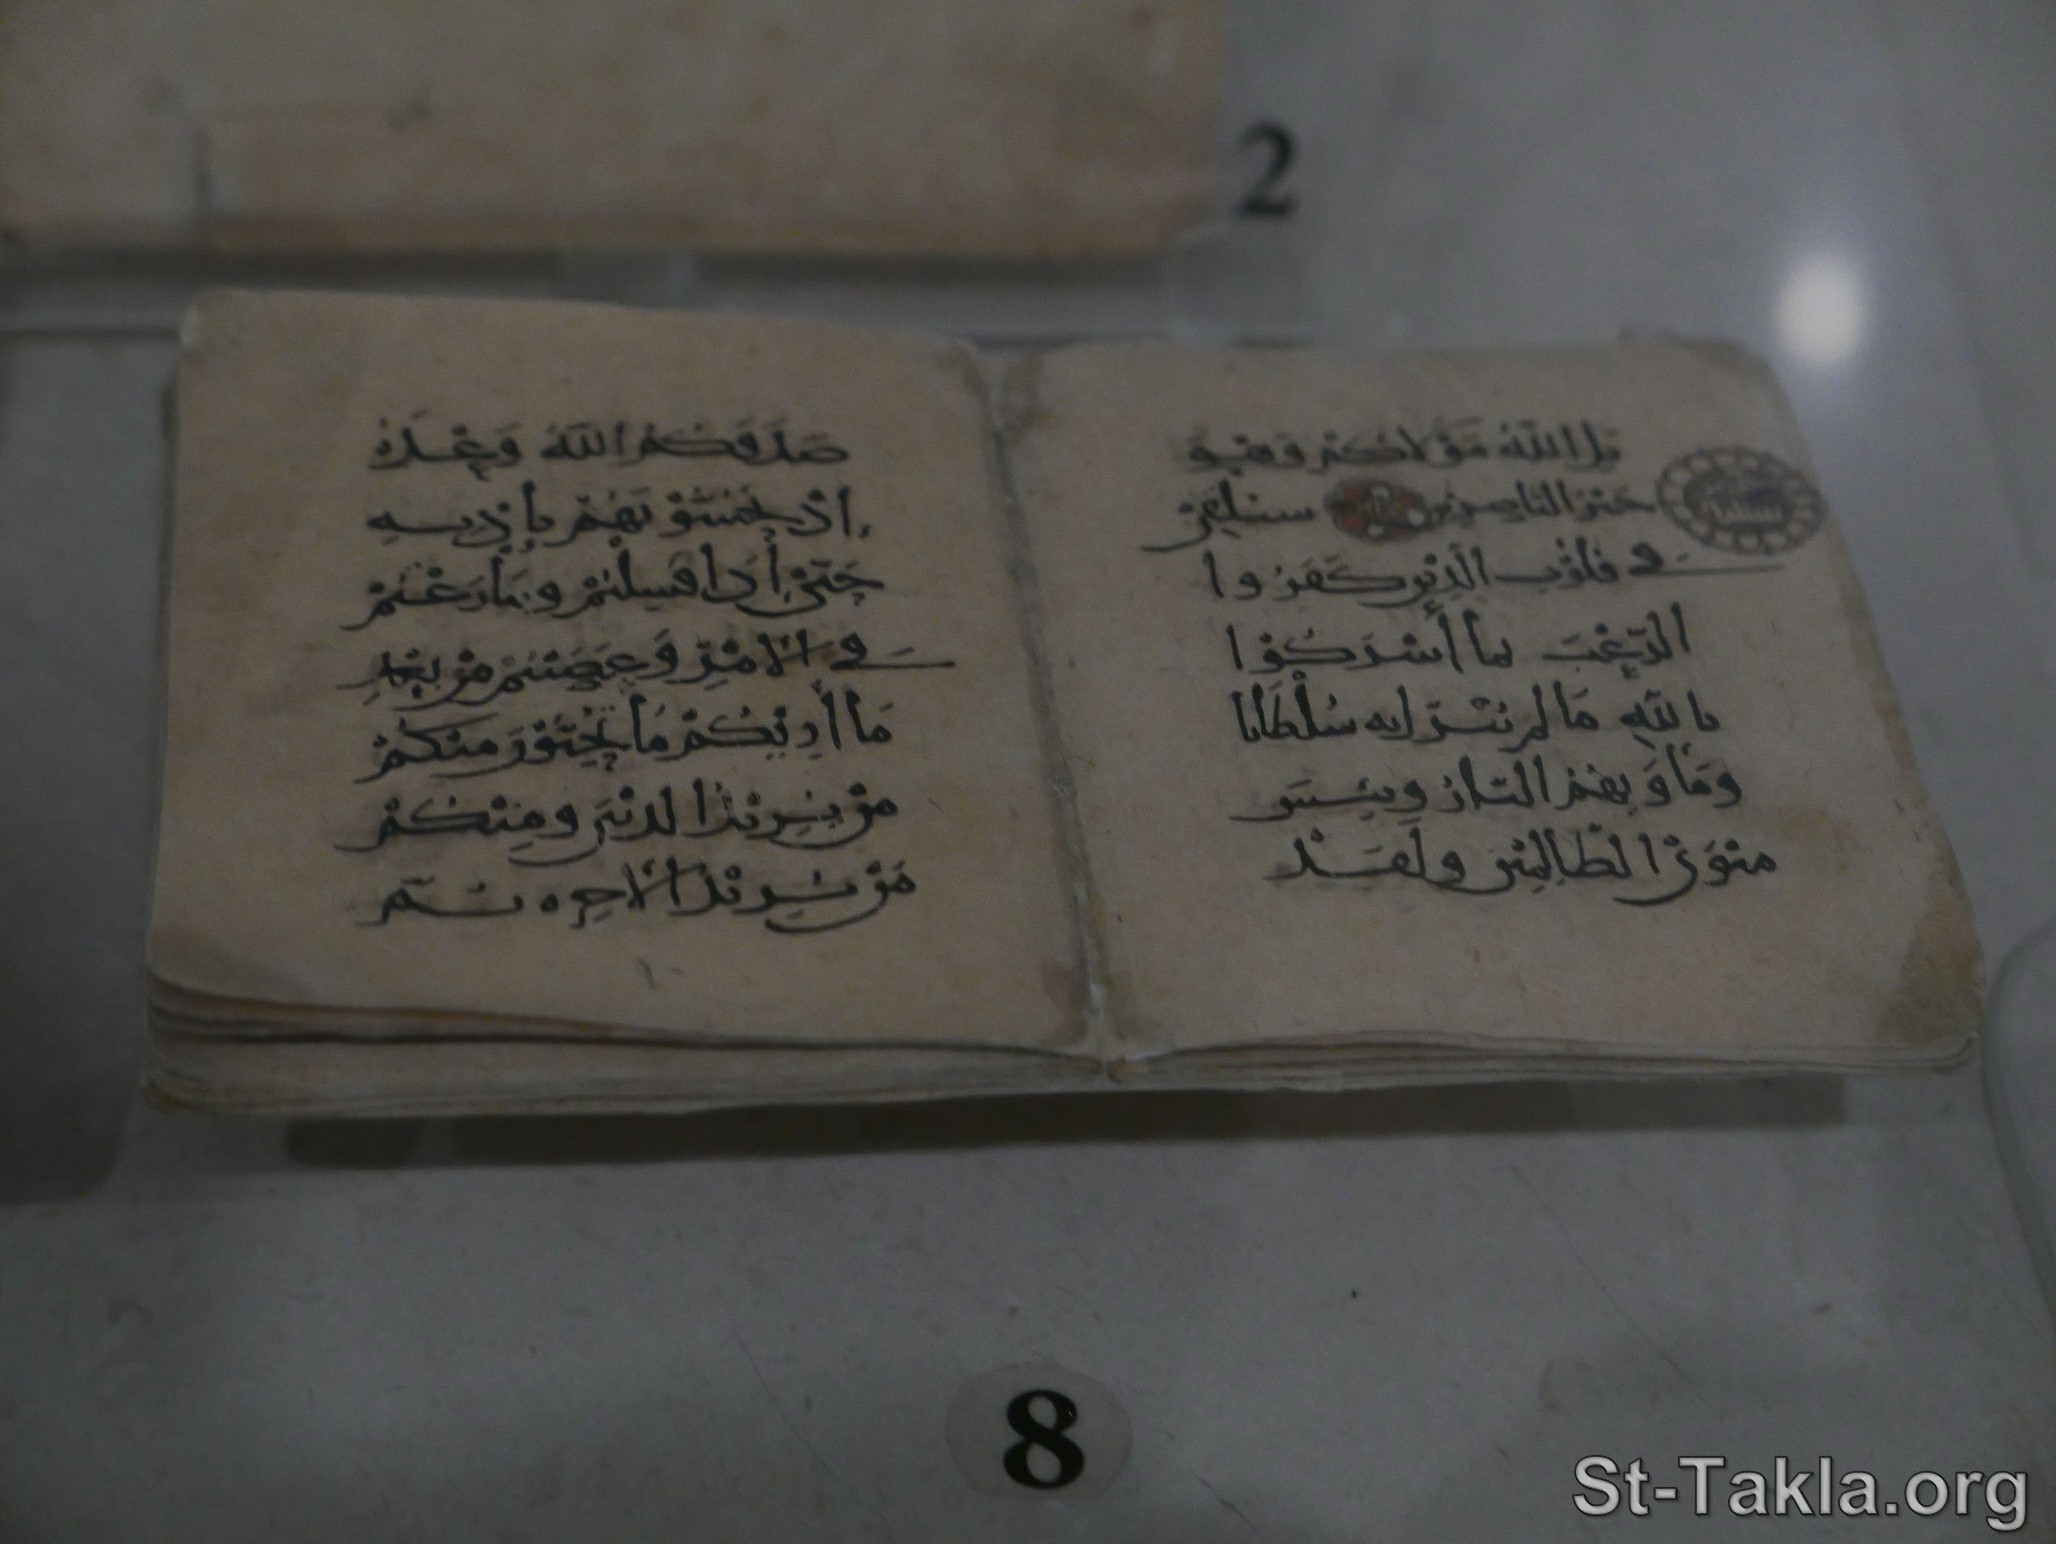 2
بل الله مولاكم وهو
خير الناصرين سنلقي
في قلوب الذين كفروا
الرعب بما أشركوا
بالله ما لم ينزل به سلطانا
وماويهم النار وبئس
مثوى الظالمين ولقد
صدقكم الله وعده
إذ تحسونهم بإذنه
حتى إذا فشلتم وتنازعتم
في الامر وعصيتم من بعد
ما أريكم ما تحبون منكم
من يريد الدنيا ومنكم
من يريد الاخرة ثم
8
St-Takla.org